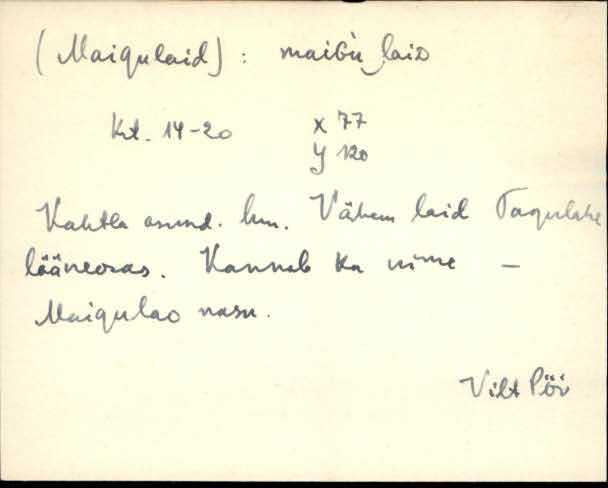 (Maigulaid) : maiGù laiD
Krt. 14-20 X 77
Y 120
Kahtla asund. hm. Vähem laid Tagulahe
lääneosas. Kannab ka nime –
Maigulao nasu.
Vilt Pöi